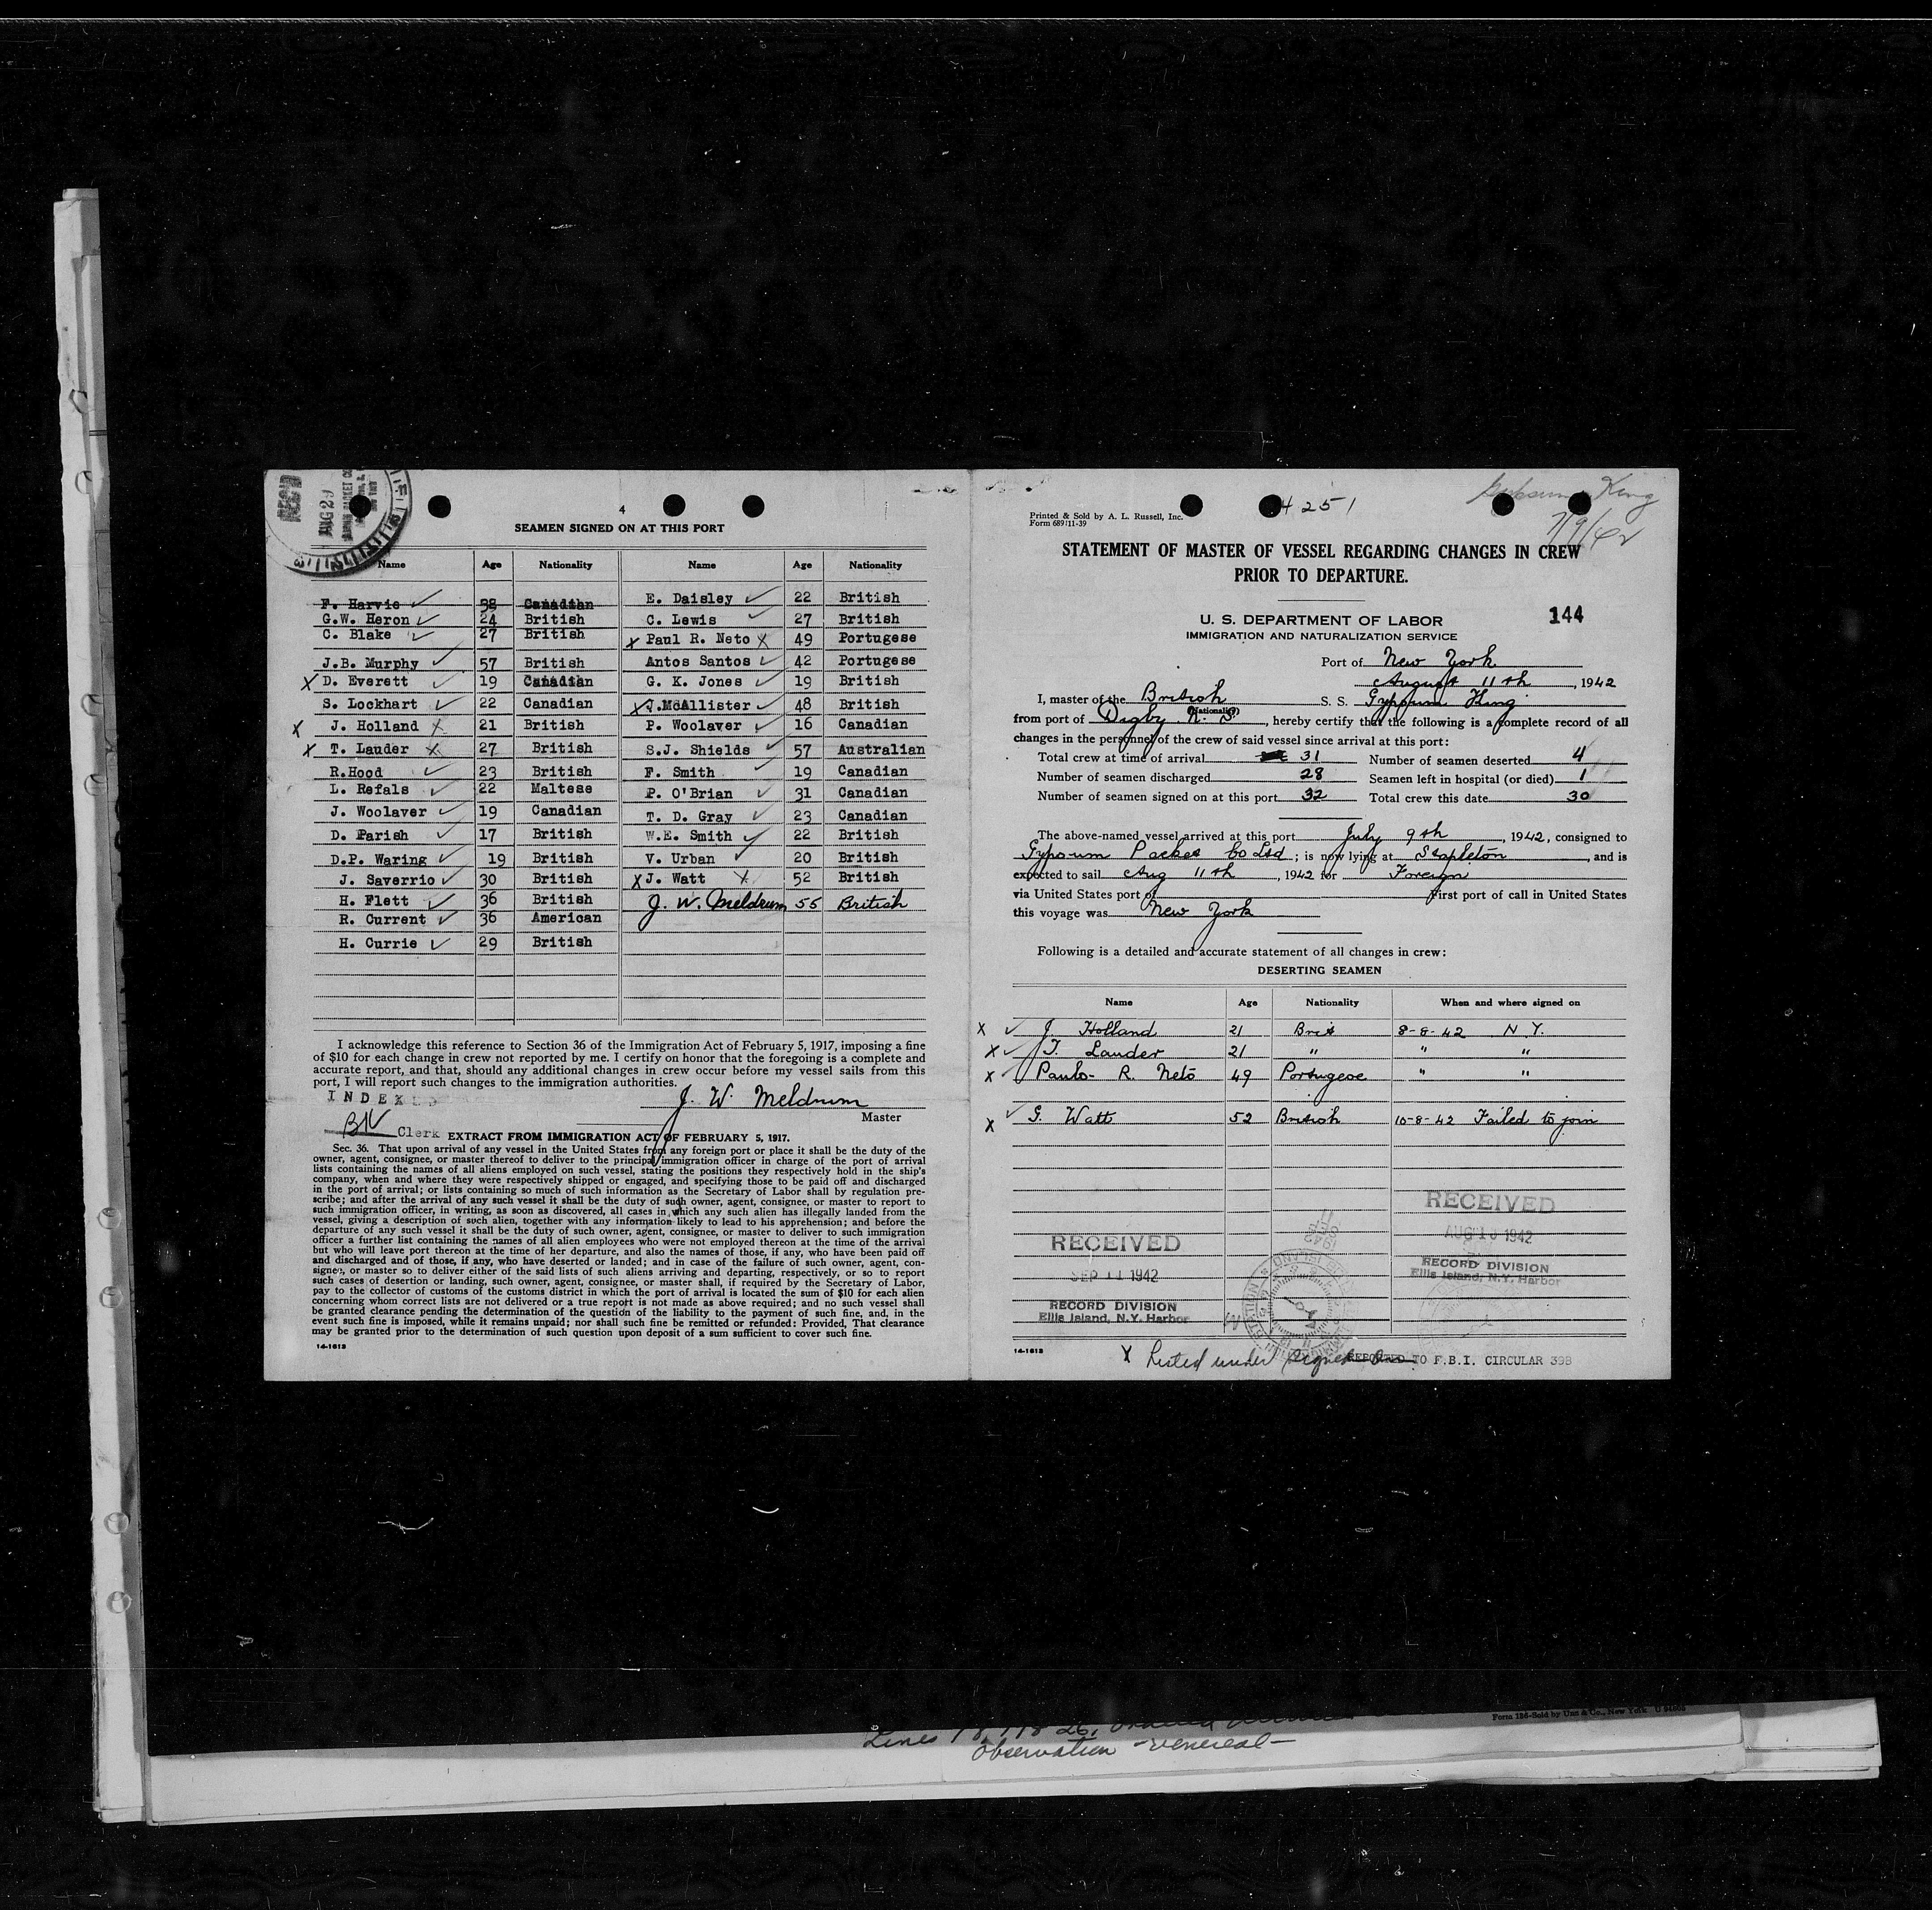 REC'D
AUG 29
4
SEAMEN SIGNED ON AT THIS PORT
Name Age Nationality Name Age Nationality
F. Harvie 38 Canadian E. Daisley 22 British
G.W. Heron 24 British C. Lewis 27 British
C. Blake 27 British X Paul R. Neto X 49 Portugese
J.B. Murphy 57 British Antos Santos 42 Portugese
X D. Everett 19 Canadian G. K. Jones 19 British
S. Lockhart 22 Canadian X J.McAllister 48 British
X J. Holland X 21 British P. Woolaver 16 Canadian
X T. Lauder X 27 British S.J. Shields 57 Australian
R.Hood 23 British F. Smith 19 Canadian
L. Refals 22 Maltese P. O'Brian 31 Canadian
J. Woolaver 19 Canadian T. D. Gray 23 Canadian
D. Parish 17 British W.E. Smith 22 British
D.P. Waring 19 British V. Urban 20 British
J. Saverrio 30 British X J. Watt X 52 British
H. Flett 36 British J. W. Meldrum 55 British
R. Current 36 American
H. Currie 29 British
I acknowledge this reference to Section 36 of the Immigration Act of February 5, 1917, imposing a fine
of $10 for each change in crew not reported by me. I certify on honor that the foregoing is a complete and
accurate report, and that, should any additional changes in crew occur before my vessel sails from this
port, I will report such changes to the immigration authorities.
INDEXED
J. W. Meldrum
Master
BN Clerk
EXTRACT FROM IMMIGRATION ACT OF FEBRUARY 5, 1917.
Sec. 36. That upon arrival of any vessel in the United States from any foreign port or place it shall be the duty of the
owner, agent, consignee, or master thereof to deliver to the principal immigration officer in charge of the port of arrival
lists containing the names of all aliens employed on such vessel, stating the positions they respectively hold in the ship's
company, when and where they were respectively shipped or engaged, and specifying those to be paid off and discharged
in the port of arrival; or lists containing so much of such information as the Secretary of Labor shall by regulation pre-
scribe; and after the arrival of any such vessel it shall be the duty of such owner, agent, consignee, or master to report to
such immigration officer, in writing, as soon as discovered, all cases in which any such alien has illegally landed from the
vessel, giving a description of such alien, together with any information likely to lead to his apprehension; and before the
departure of any such vessel it shall be the duty of such owner, agent, consignee, or master to deliver to such immigration
officer a further list containing the names of all alien employees who were not employed thereon at the time of the arrival
but who will leave port thereon at the time of her departure, and also the names of those, if any, who have been paid off
and discharged and of those, if any, who have deserted or landed; and in case of the failure of such owner, agent, con-
signee, or master so to deliver either of the said lists of such aliens arriving and departing, respectively, or so to report
such cases of desertion or landing, such owner, agent, consignee, or master shall, if required by the Secretary of Labor,
pay to the collector of customs of the customs district in which the port of arrival is located the sum of $10 for each alien
concerning whom correct lists are not delivered or a true report is not made as above required; and no such vessel shall
be granted clearance pending the determination of the question of the liability to the payment of such fine, and, in the
event such fine is imposed, while it remains unpaid; nor shall such fine be remitted or refunded: Provided, That clearance
may be granted prior to the determination of such question upon deposit of a sum sufficient to cover such fine.
14-1613
4251
King
7/9/42
Printed & Sold by A. L. Russell, Inc.
Form 689 11-39
STATEMENT OF MASTER OF VESSEL REGARDING CHANGES IN CREW
PRIOR TO DEPARTURE.
U. S. DEPARTMENT OF LABOR 144
IMMIGRATION AND NATURALIZATION SERVICE
Port of New York
August 11th, 1942
I, master of the British S. S. Gypsum King
(Nationality)
from port of Digby N. S., hereby certify that the following is a complete record of all
changes in the personnel of the crew of said vessel since arrival at this port:
Total crew at time of arrival 31 Number of seamen deserted 4
Number of seamen discharged 28 Seamen left in hospital (or died) 1
Number of seamen signed on at this port 32 Total crew this date 30
The above-named vessel arrived at this port July 9th, 1942, consigned to
Gypsum Packet Co Ltd; is now lying at Stapleton, and is
expected to sail Aug 11th, 1942 for Foreign
via United States port of First port of call in United States
this voyage was New York
Following is a detailed and accurate statement of all changes in crew:
DESERTING SEAMEN
Name Age Nationality When and where signed on
X J. Holland 21 Brit 8-8-42 N Y.
X T. Lauder 21 " " "
X Paulo R. Neto 49 Portugese " "
X G. Watt 52 British 10-8-42 Failed to join
RECEIVED
AUG 13 1942
RECORD DIVISION
Ellis Island, N.Y. Harbor
RECEIVED
SEP 11 1942
RECORD DIVISION
Ellis Island, N.Y. Harbor
14-1613
X Listed under Signed On
REPORTED TO F.B.I. CIRCULAR 39B
Form 126-Sold by Unz & Co., New York
Observation - venereal -